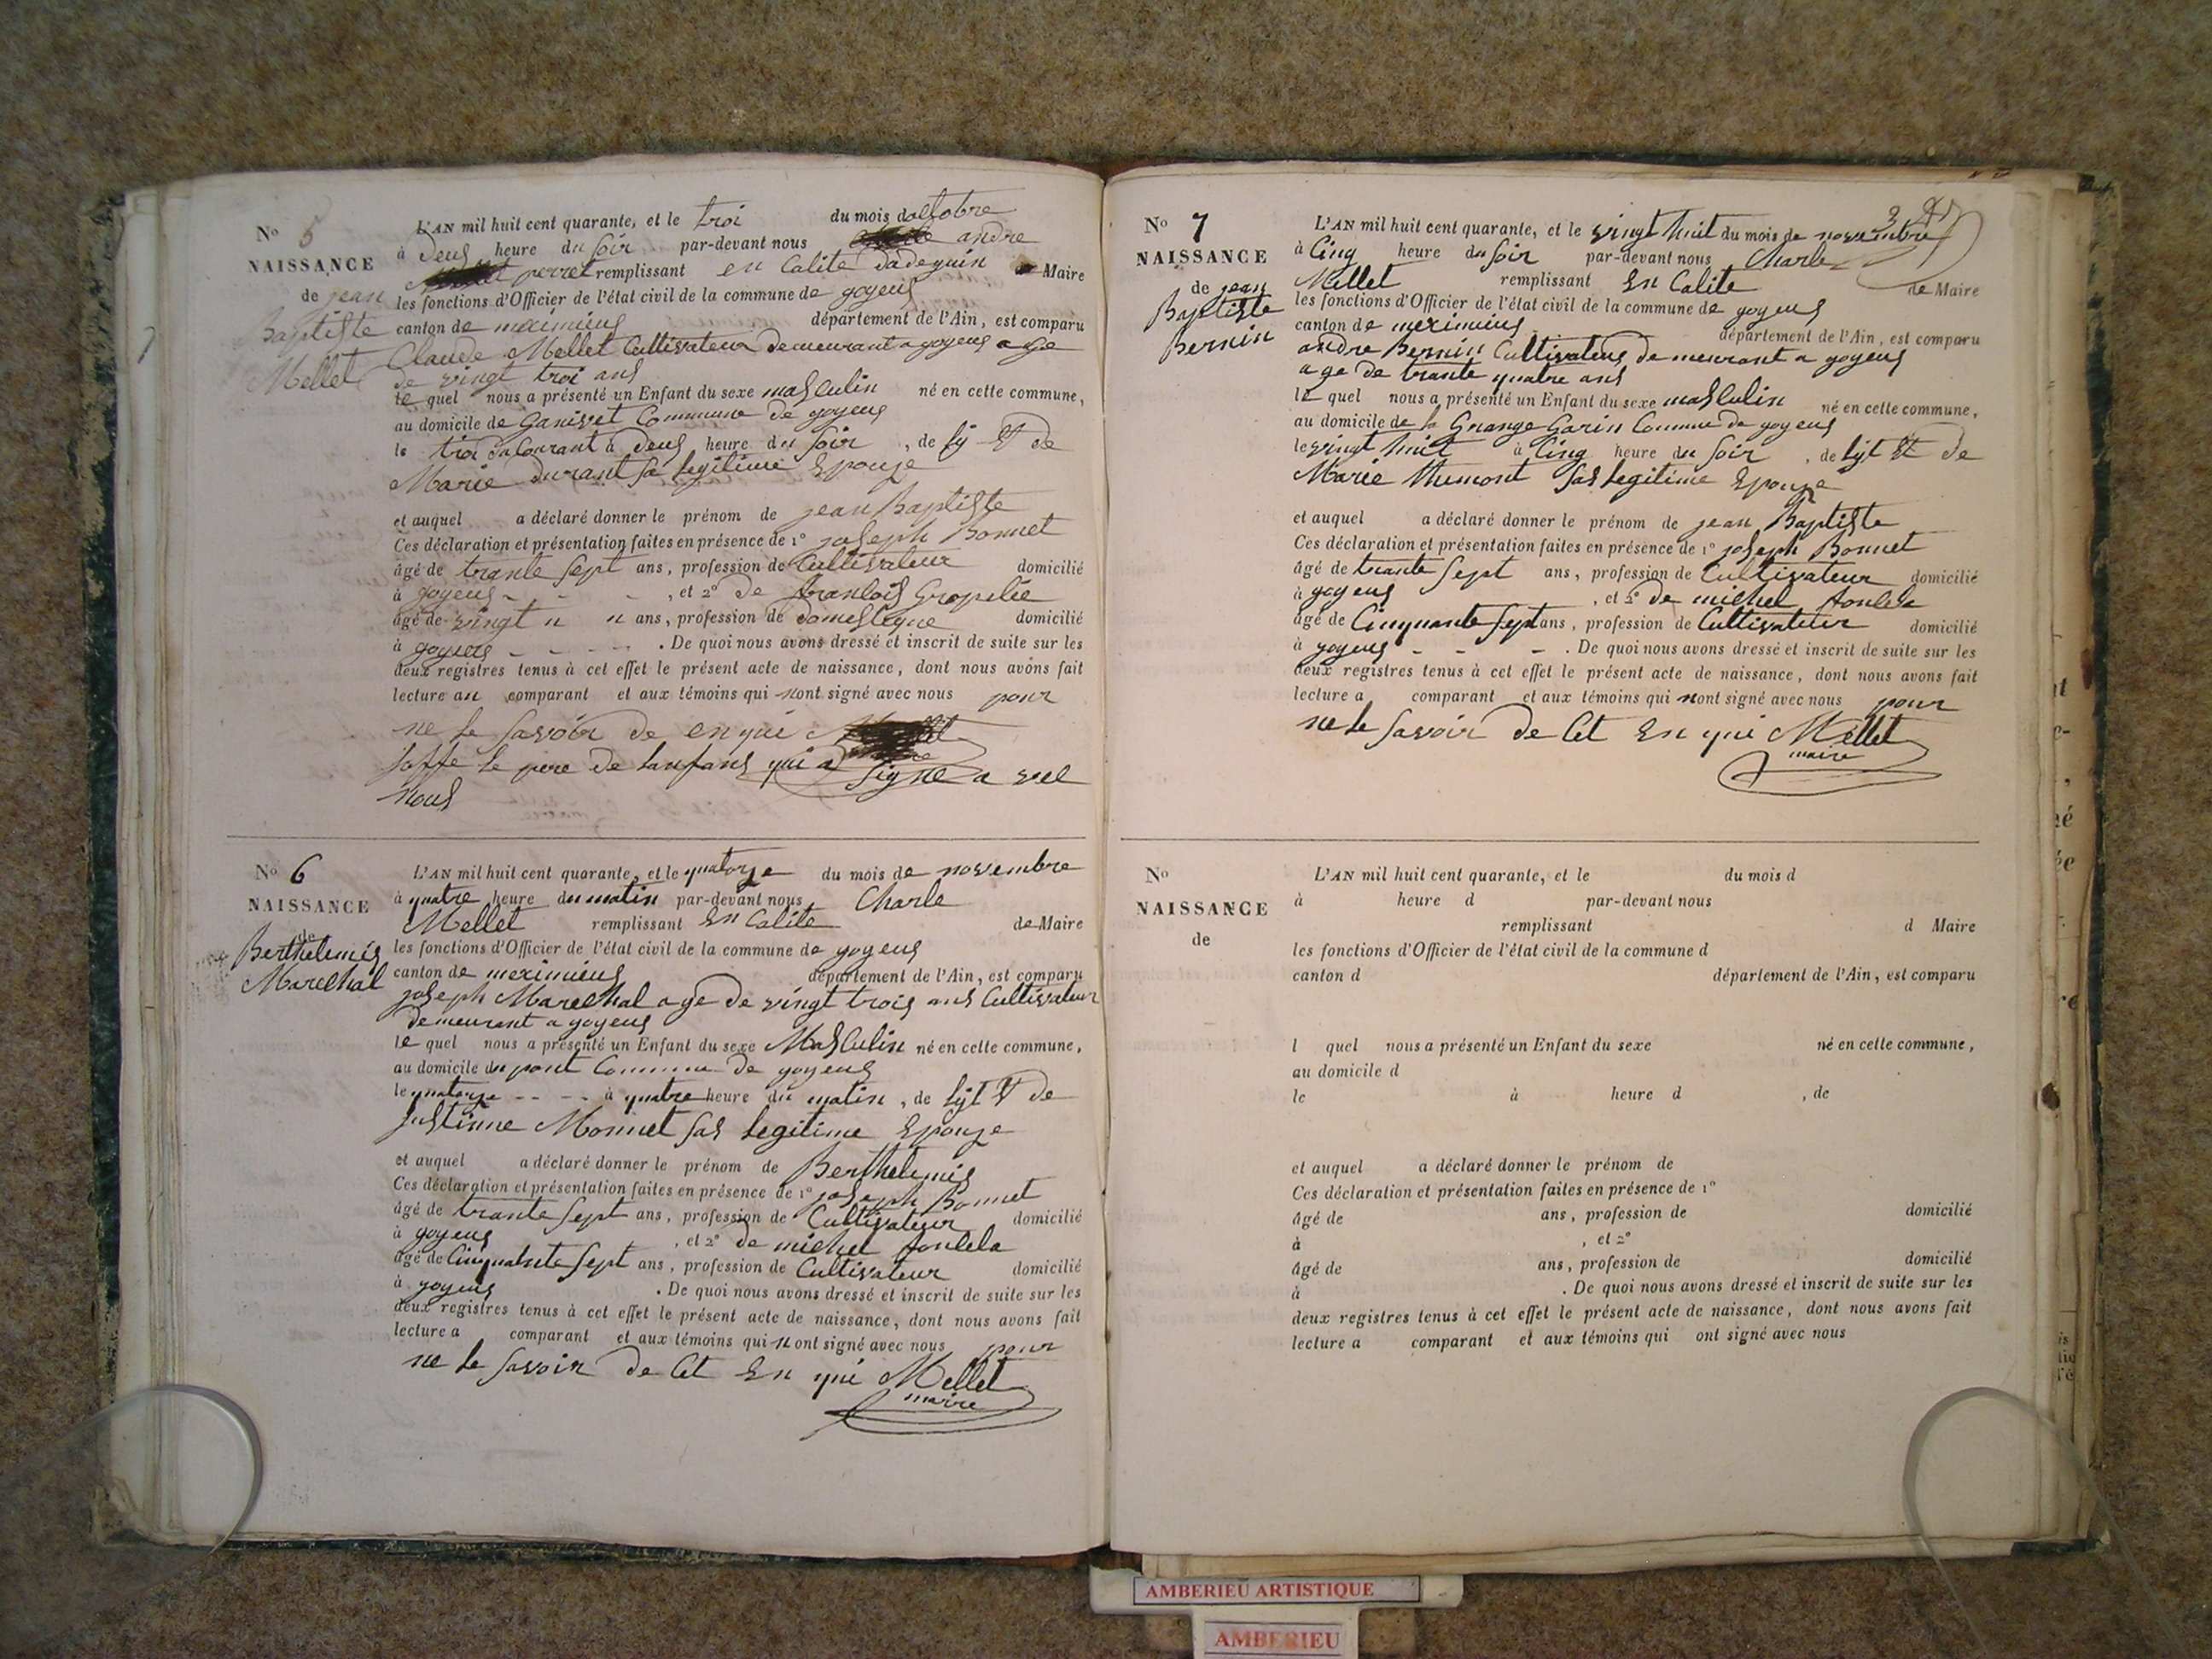 No 5
NAISSANCE
de jean
Baptiste
Mellet
L'AN mil huit cent quarante, et le troi du mois doctobre
à deus heure du soir par-devant nous andre
perret remplissant en Calite dadeguin Maire
les fonctions d'Officier de l'état civil de la commune de goyeus
canton de meximieus département de l'Ain, est comparu
Claude Mellet Cultivateur demeurant a goyeus age
de vingt troi ans
le quel nous a présenté un Enfant du sexe masculin né en cette commune,
au domicile de Ganivet Commune de goyeus
le troi du Courant à deus heure du soir, de lij et de
Marie durant sa legitime Epouze
et auquel a déclaré donner le prénom de jean Baptiste
Ces déclaration et présentation faites en présence de 1° joseph Bonnet
âgé de trante sept ans, profession de Cultivateur domicilié
à goyeus - - -, et 2° de francois Gropelie
âgé de vingt " " ans, profession de domestique domicilié
à goyeus - - - -. De quoi nous avons dressé et inscrit de suite sur les
deux registres tenus à cet effet le présent acte de naissance, dont nous avons fait
lecture au comparant et aux témoins qui nont signé avec nous pour
ne le savoir de en qui
soffe le pere de lanfans qui a signe a vec
nous
No 6
NAISSANCE
de
Berthelemis
Marechal
L'AN mil huit cent quarante, et le quatorze du mois de novembre
à quatre heure du matin par-devant nous Charle
Mellet remplissant En Calite de Maire
les fonctions d'Officier de l'état civil de la commune de goyeus
canton de meximieus département de l'Ain, est comparu
joseph Marechal age de vingt trois ans Cultivateur
demeurant a goyeus
le quel nous a présenté un Enfant du sexe Masculin né en cette commune,
au domicile du pont Commune de goyeus
le quatorze - - - à quatre heure du matin, de lijt et de
justinne Monnet sas legitime Epouze
et auquel a déclaré donner le prénom de Berthelemis
Ces déclaration et présentation faites en présence de 1° joseph Bonnet
âgé de trante sept ans, profession de Cultivateur domicilié
à goyeus, et 2° de michel
âgé de Cinquante sept ans, profession de Cultivateur domicilié
à goyeus. De quoi nous avons dressé et inscrit de suite sur les
deux registres tenus à cet effet le présent acte de naissance, dont nous avons fait
lecture a comparant et aux témoins qui nont signé avec nous pour
ne le savoir de Cet En qui Mellet
maire
No 7
NAISSANCE
de jean
Baptiste
Bernin
L'AN mil huit cent quarante, et le vingt huit du mois de novembre
à Cinq heure du soir par-devant nous Charle
Mellet remplissant En Calite de Maire
les fonctions d'Officier de l'état civil de la commune de goyeus
canton de meximieus département de l'Ain, est comparu
andre Bernin Cultivateus demeurant a goyeus
age de trante quatre ans
le quel nous a présenté un Enfant du sexe masculin né en cette commune,
au domicile de la Grange Garin Comune de goyeus
le vingt huit à Cinq heure du soir, de lijt et de
Marie Humont sas legitime Epouze
et auquel a déclaré donner le prénom de jean Baptiste
Ces déclaration et présentation faites en présence de 1° joseph Bonnet
âgé de trante sept ans, profession de Cultivateur domicilié
à goyeus, et 2° de michel
âgé de Cinquante sept ans, profession de Cultivateur domicilié
à goyeus - - -. De quoi nous avons dressé et inscrit de suite sur les
deux registres tenus à cet effet le présent acte de naissance, dont nous avons fait
lecture a comparant et aux témoins qui nont signé avec nous pour
ne le savoir de Cet En qui Mellet
maire
No
NAISSANCE
de
L'AN mil huit cent quarante, et le du mois d
à heure d par-devant nous
remplissant d Maire
les fonctions d'Officier de l'état civil de la commune d
canton d département de l'Ain, est comparu
l quel nous a présenté un Enfant du sexe né en cette commune,
au domicile d
le à heure d, de
et auquel a déclaré donner le prénom de
Ces déclaration et présentation faites en présence de 1°
âgé de ans, profession de domicilié
à, et 2°
âgé de ans, profession de domicilié
à. De quoi nous avons dressé et inscrit de suite sur les
deux registres tenus à cet effet le présent acte de naissance, dont nous avons fait
lecture a comparant et aux témoins qui ont signé avec nous
AMBERIEU ARTISTIQUE
AMBERIEU